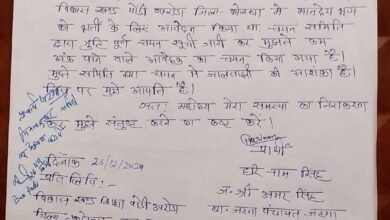 विकास खण्ड पोंड़ी उपरोड़ा जिला- कोरबा में मानदेय भृत्य
की भर्ती के लिए आवेदन किया था चयन समिति
द्वारा त्रुटि पूर्ण चयन सूची जारी कर मुझसे कम
अंक पाने वाले आवेदक का चयन किया गया है।
मुझे समिति द्वारा चयन में जालसाजी की आशंका है।
जिस पर मुझे आपत्ति है।
अतः महोदय मेरा समस्या का निराकरण
कर मुझे संतुष्ट करने का कष्ट करें।
प्रार्थी
दिनांक 26/12/2024
प्रतिलिपि:-
हरि राम सिंह
ज. श्री अमर सिंह
विकास खण्ड शिक्षा पोंड़ी उपरोड़ा
ग्रा. जटगा पंचायत- जटगा
जिला-